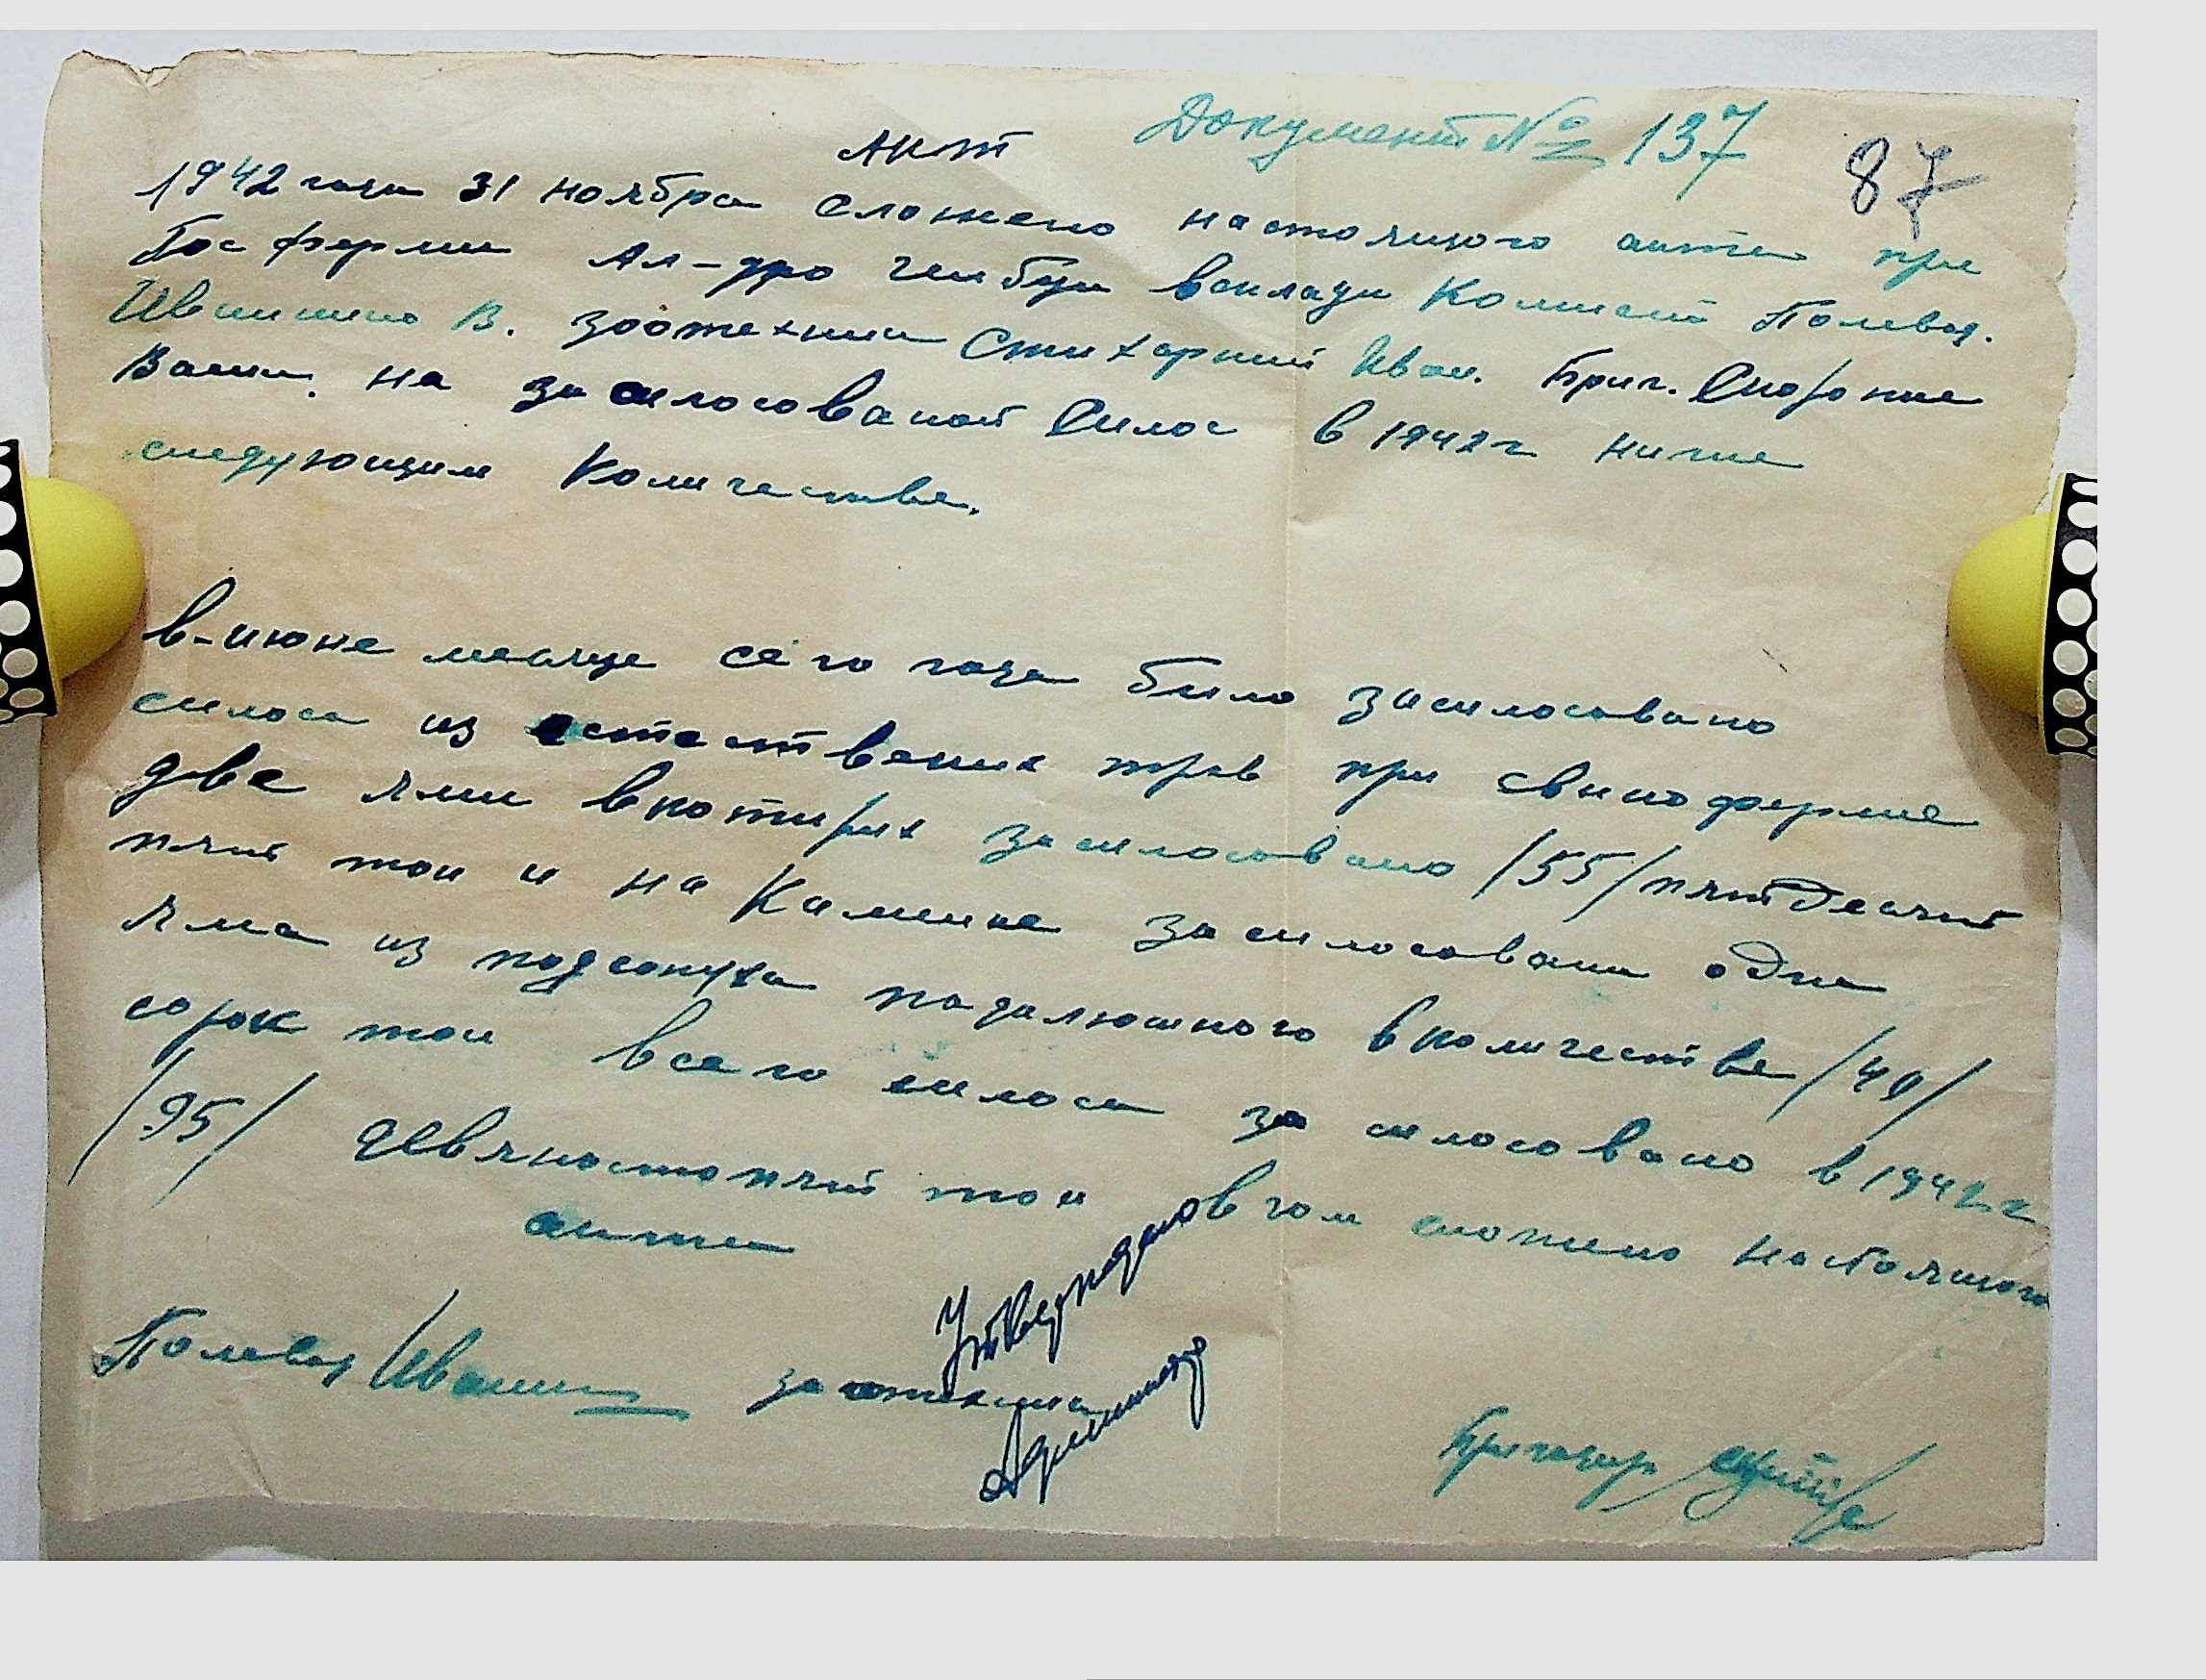 Документ № 137
87
Акт
1942 года 31 ноября сложено настоящого акта при
Гос ферми Ал-дро вскладу Комисии Полевая.
В. зоотехника Иван. Бриг.
Вани. на засилосованой Силос в 1942 г ниже
следующим Количестве.
в-июне месяце сего года било засилосовано
силоса из естествених трав при свиноферме
две ями вкотирих засилосовано /55/ пятдесят
пять тон и на Камине засилосвана одна
яма из подсонуха падалюшного вколичестве /40/
сорок тон всего силоса засилосовано в 1942 г
/95/ девяностопять тон очом сложено настоящого
акта
Утверждаю
Полевая Иванин зоотехник
Бригадир